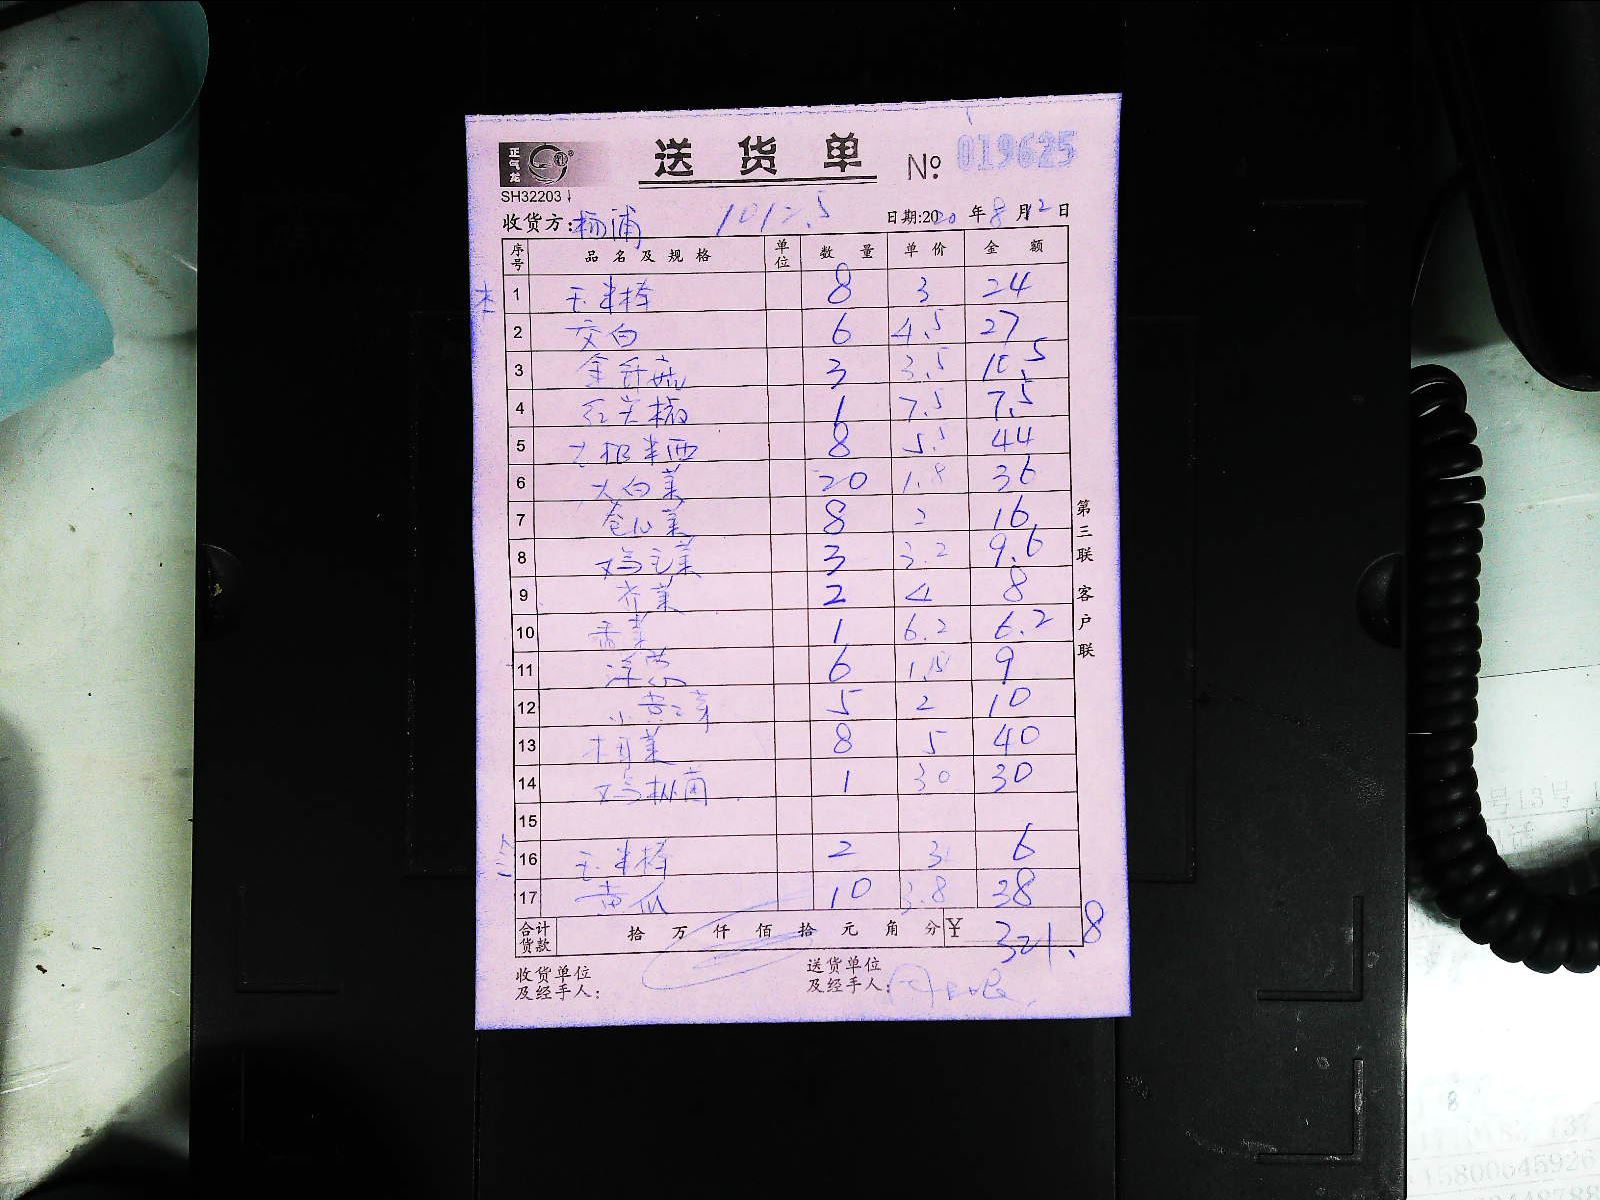 正气龙
送货单 № 019625
SH32203
收货方:杨浦 1012.5 日期:2020年8月12日
序号 品名及规格 单位 数量 单价 金额
本
1 玉米棒 8 3 24
2 交白 6 4.5 27
3 金针菇 3 3.5 10.5
4 红尖椒 1 7.5 7.5
5 8 5.5 44
6 大白菜 20 1.8 36
7 卷心菜 8 2 16
8 鸡毛菜 3 3.2 9.6
9 齐菜 2 4 8
10 香菜 1 6.2 6.2
11 洋葱 6 1.5 9
12 小黄芽 5 2 10
13 8 5 40
14 鸡枞菌 1 30 30
15
16 玉米棒 2 3 6
17 黄瓜 10 3.8 38
合计货款 拾 万 仟 佰 拾 元 角 分 ¥ 321.8
收货单位及经手人: 送货单位及经手人:
第三联 客户联
号13号
15800645926